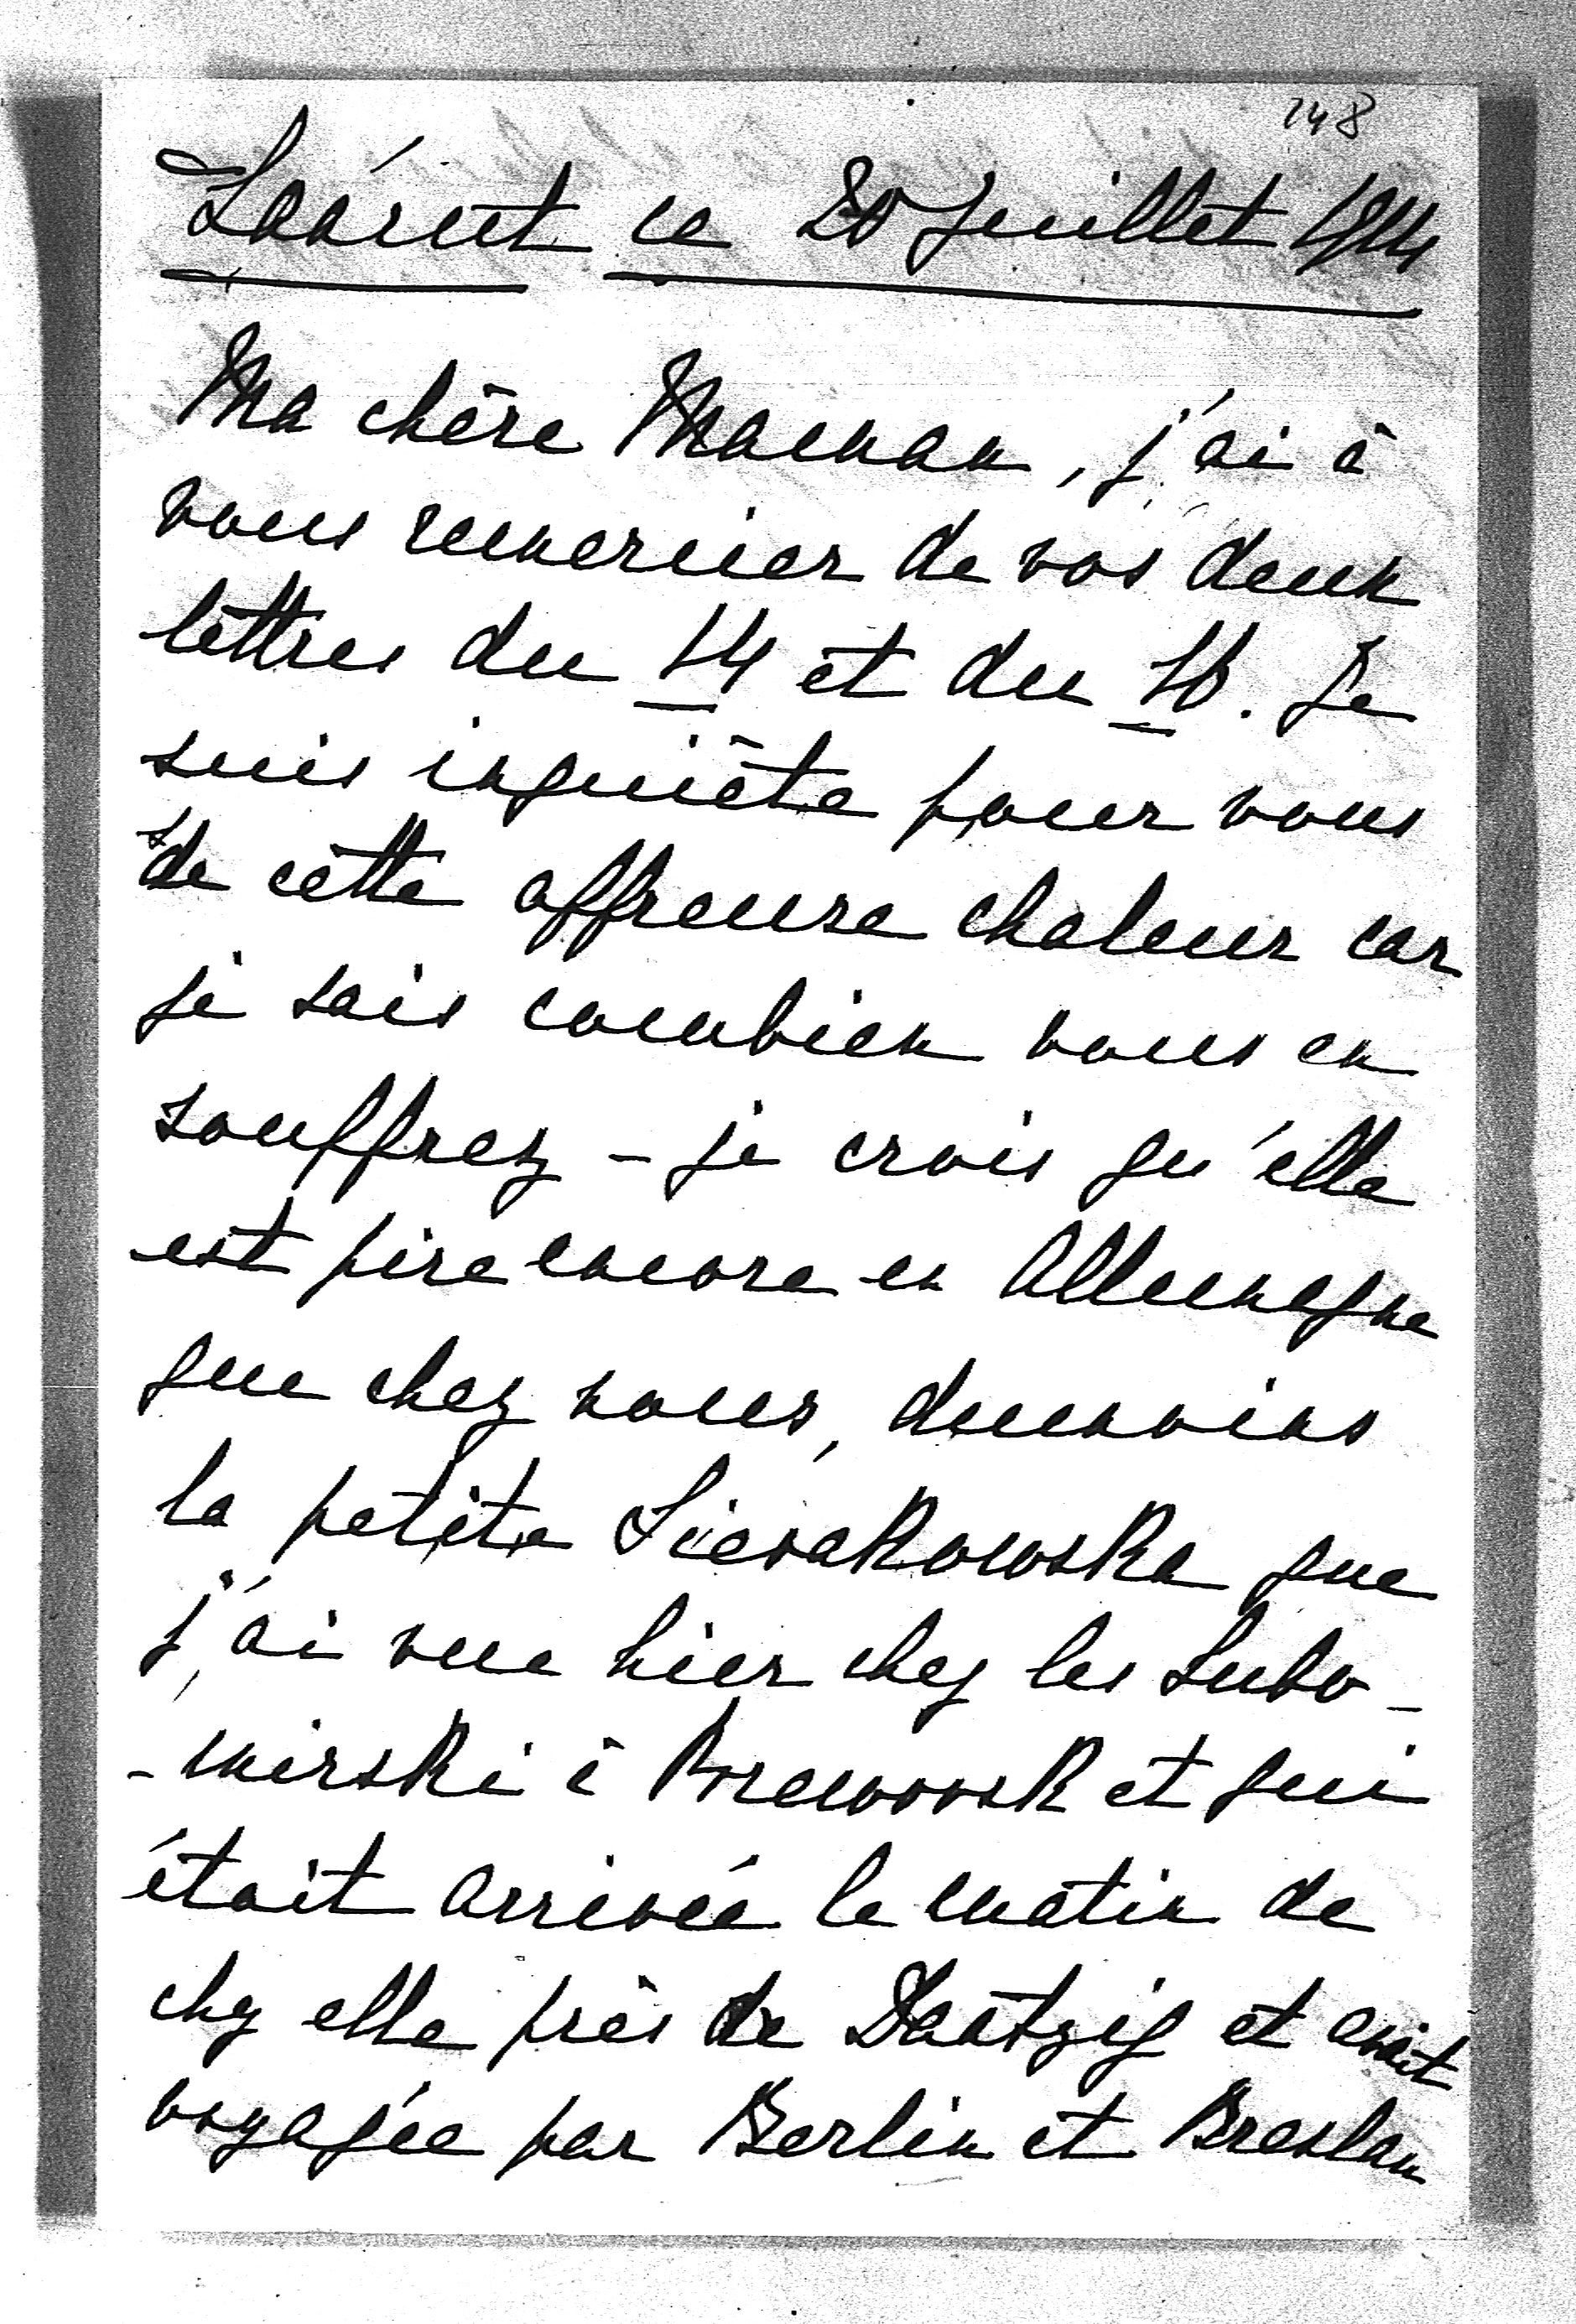 148
Łańcut ce 20 Juillet 1914
Ma chère Maman, j'ai à
vous remercier de vos deux
lettres du 14 et du 16. Je
suis inquiète pour vous
de cette affreuse chaleur car
je sais combien vous en
souffrez - je crois qu'elle
est pire encore en Allemagne
que chez nous, dumoins
la petite Sierakowska que
j'ai vue hier chez les Lubo-
-mirski à et qui
était arrivée le matin de
chez elle près de Dantzig et avait
voyagée par Berlin et Breslau